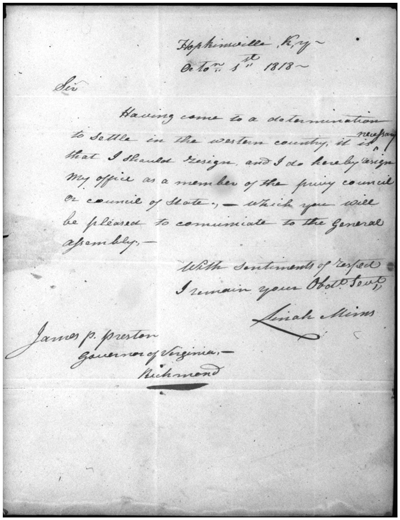 Hopkinsville, Ky~
Octo'r. 1st. 1818~
Sir
Having come to a determination
to settle in the western country, it is necessary
that I should resign, and I do hereby resign
my office as a member of the privy council
or council of State,~ which you will
be pleased to comuniate to the General
assembly.~
With sentiments of respect
I remain your Obdt. Sevt,
Linah Mims
James P. Preston
Governor of Virginia,~
Richmond